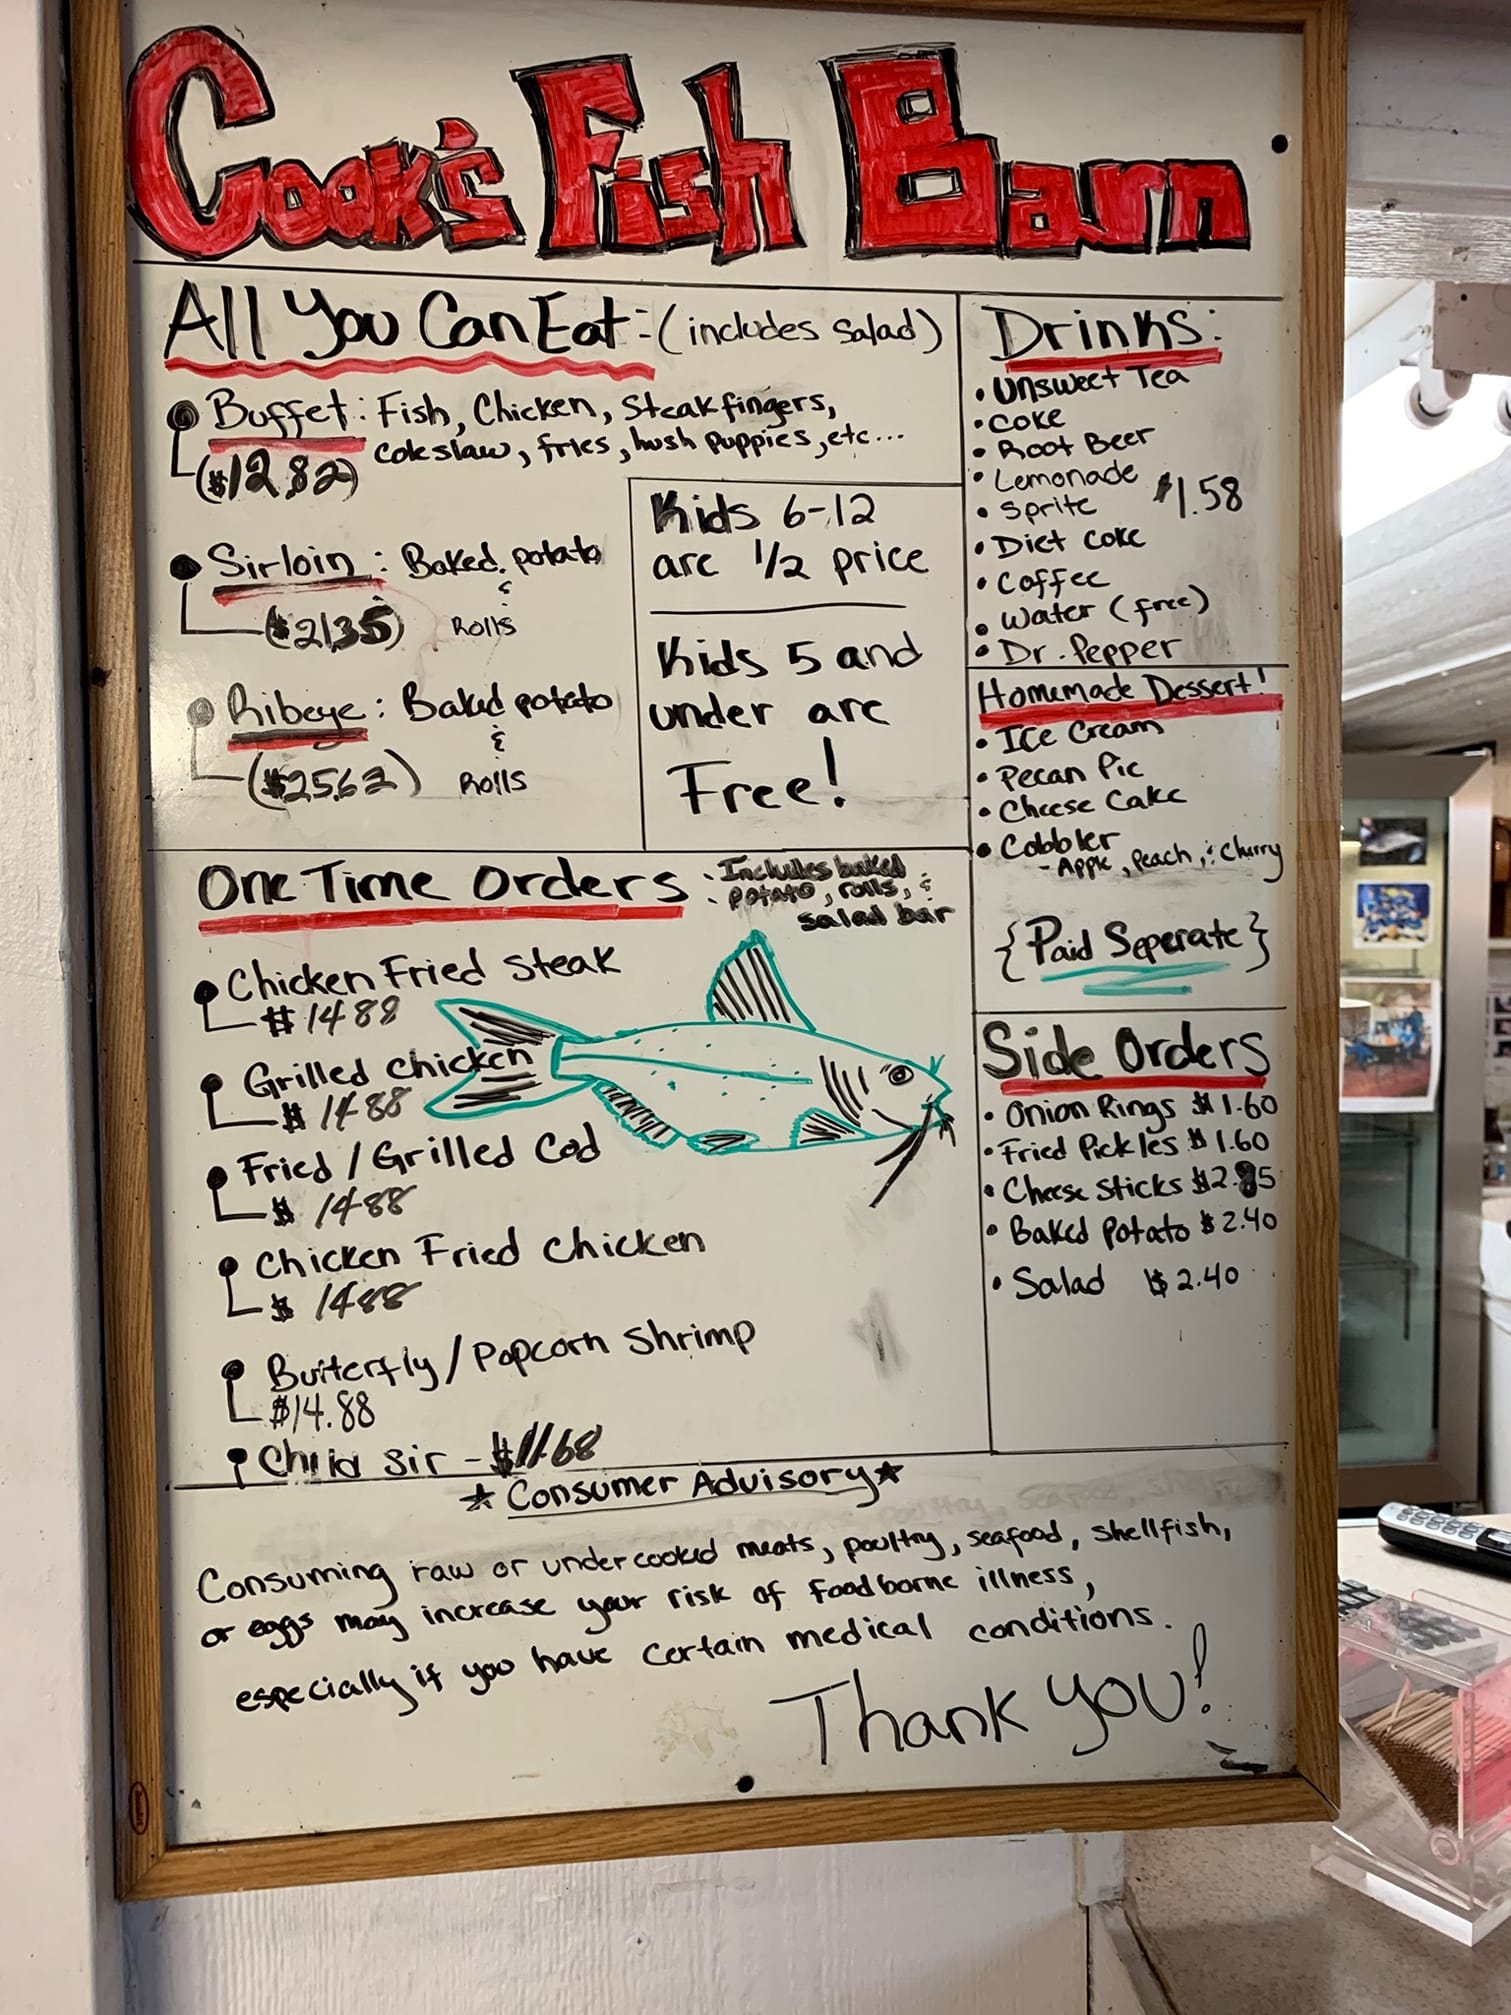 Cook's Fish Barn
All You Can Eat: (includes salad)
Buffet: Fish, Chicken, Steakfingers,
coleslaw, fries, hush puppies, etc...
($12.82)
Sirloin: Baked potato
&
($21.35) Rolls
Ribeye: Baked potato
&
($25.62) Rolls
Kids 6-12
are 1/2 price
Kids 5 and
under are
Free!
Drinks:
• Unsweet Tea
• Coke
• Root Beer
• Lemonade
• Sprite
$1.58
• Diet Coke
• Coffee
• Water (free)
• Dr. Pepper
Homemade Dessert!
• Ice Cream
• Pecan Pie
• Cheese Cake
• Cobbler
- Apple, Peach, & Cherry
{Paid Seperate}
One Time Orders
: Includes baked
potato, rolls, &
salad bar
Chicken Fried Steak
$14.88
Grilled Chicken
$14.88
Fried / Grilled Cod
$14.88
Chicken Fried Chicken
$14.88
Butterfly / Popcorn Shrimp
$14.88
Child Sir - $11.68
Side Orders
• Onion Rings $1.60
• Fried Pickles $1.60
• Cheese Sticks
• Baked Potato $2.40
• Salad $2.40
★ Consumer Advisory ★
Consuming raw or undercooked meats, poultry, seafood, shellfish,
or eggs may increase your risk of foodborne illness,
especially if you have certain medical conditions.
Thank You!